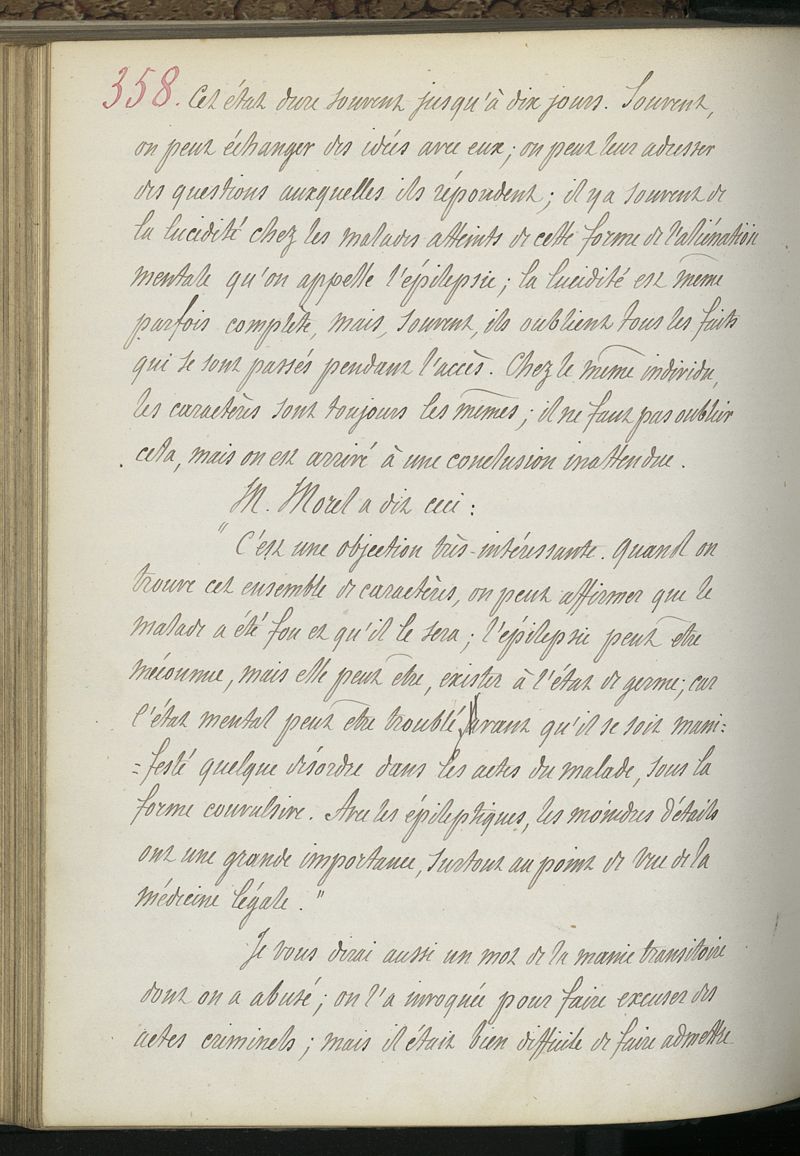 358. Cet état dure souvent jusqu'à dix jours. Souvent,
on peut échanger des idées avec eux ; on peut leur adresser
des questions auxquelles ils répondent ; il y a souvent de
la lucidité chez les malades atteints de cette forme de l'aliénation
mentale qu'on appelle l'épilepsie ; la lucidité est même
parfois complète, mais, souvent, ils oublient tous les faits
qui se sont passés pendant l'accès. Chez le même individu,
les caractères sont toujours les mêmes ; il ne faut pas oublier
cela, mais on est arrivé à une conclusion inattendue.
M. Morel a dit ceci :
" C'est une objection très-intéressante. Quand on
trouve cet ensemble de caractères, on peut affirmer que le
malade a été fou et qu'il le sera ; l'épilepsie peut être
méconnue, mais elle peut être, exister à l'état de germe ; car
l'état mental peut être troublé, avant qu'il se soit mani=
=festé quelque désordre dans les actes du malade, sous la
forme convulsive. Avec les épileptiques, les moindres détails
ont une grande importance, surtout au point de vue de la
médecine légale. "
Je vous dirai aussi un mot de la manie transitoire
dont on a abusé ; on l'a invoquée pour faire excuser des
actes criminels ; mais il était bien difficile de faire admettre